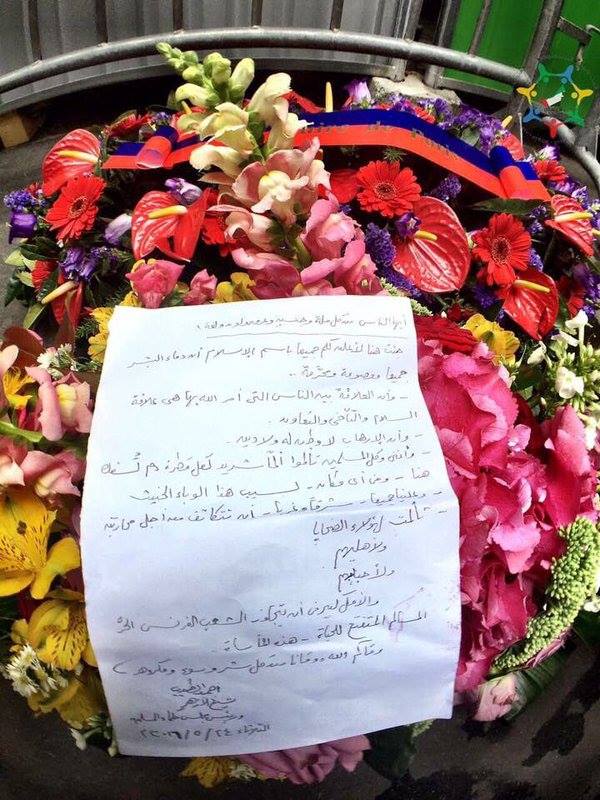 Mairie de Paris
أيها الناس من كل ملة وجنسية وعرق ودولة:
جئت هنا لأعلن لكم جميعا باسم الإسلام أن دماء البشر
جميعا معصومة ومحرَّمة ..
- وأن العلاقة بين الناس التي أمر الله بها هي علاقة
السلام والتآخي والتعاون.
- وأن الإرهاب لا وطن له ولا دين
- وأنني وكل المسلمين تألموا ألمًا شديدا لكل قطرة دم تُسفك
هنا - وفي أي مكان - بسبب هذا الوباء الخبيث
- وعلينا جميعا - شرقا وغربا - أن نتكاتف من أجل محاربته
- تألمت لهؤلاء الضحايا
ولأهليهم
ولأحبابهم
والأمل كبير في أن يتجاوز الشعب الفرنسي الحرّ
المسالم المتفتح للحياة - هذه المأساة.
وقاكم الله ووقانا من كل شر وسوء ومكروه
أحمد الطيب
شيخ الأزهر
ورئيس مجلس حكماء المسلمين
الثلاثاء ٢٤/٥/٢٠١٦